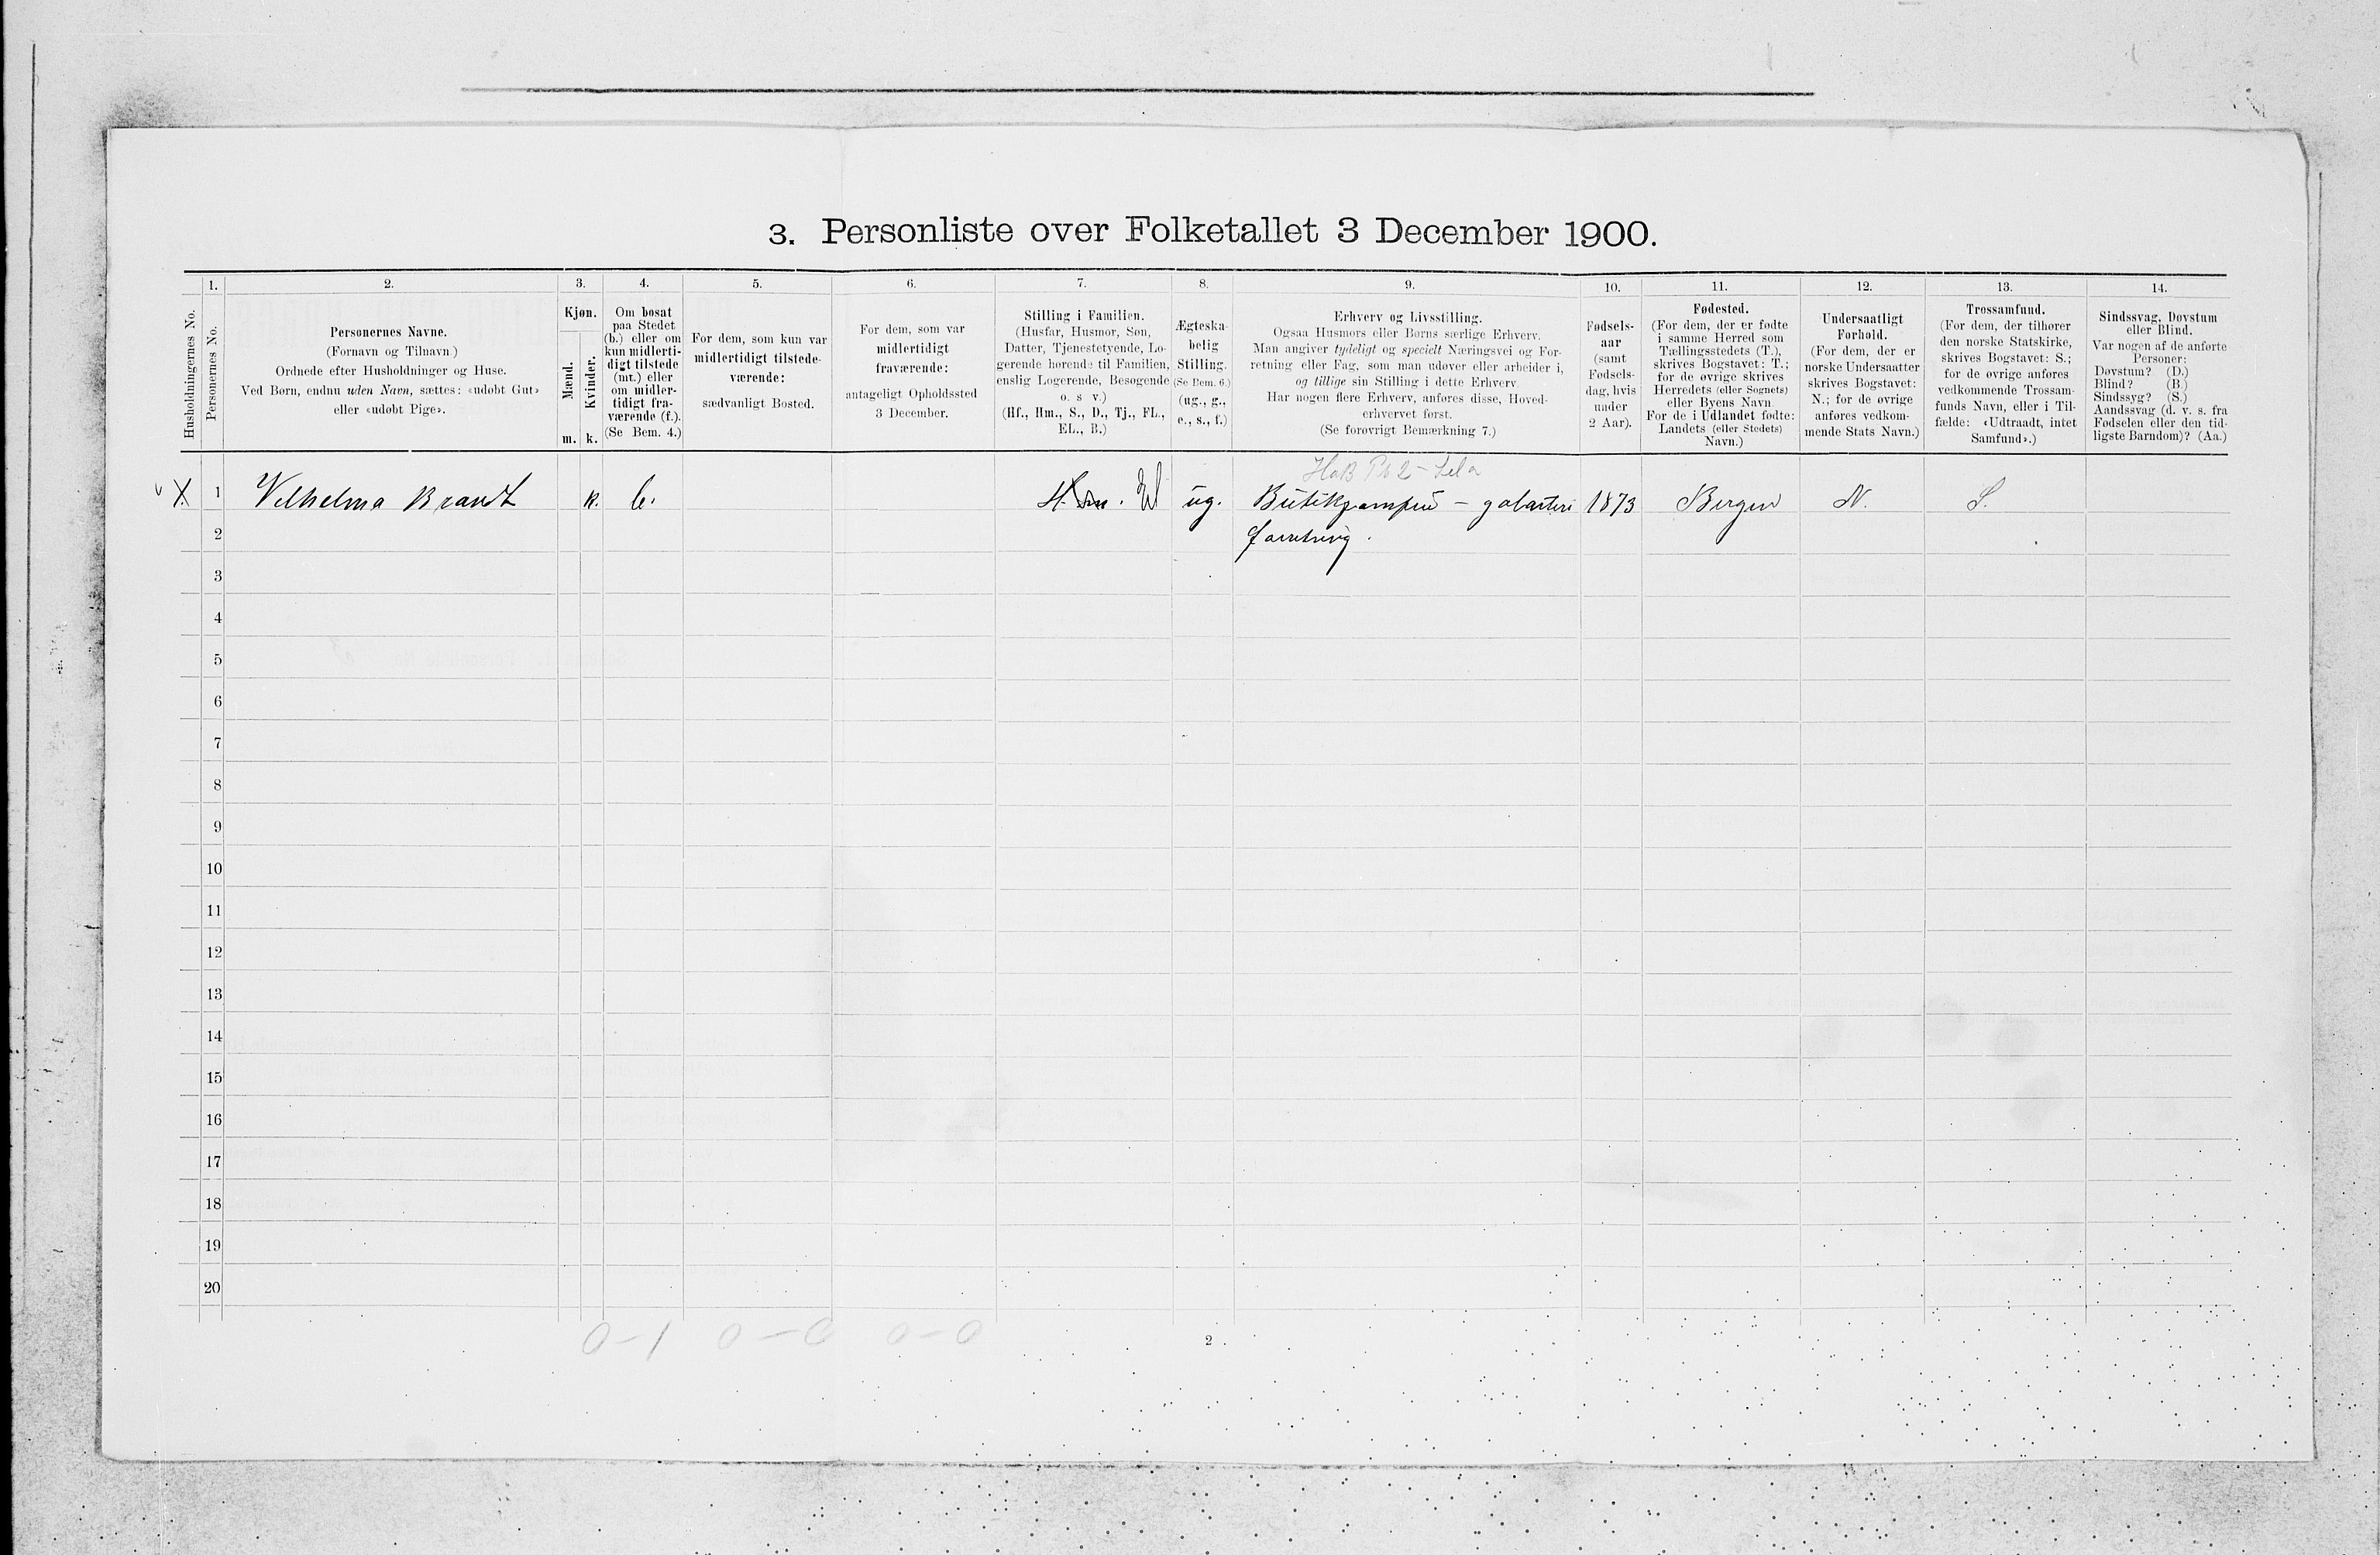 3. Personliste over Folketallet 3 December 1900.
Husholdningernes No.
1.
Personernes No.
2.
Personernes Navne.
(Fornavn og Tilnavn)
Ordnede efter Husholdninger og Huse.
Ved Børn, endnu uden Navn, sættes: «udøbt Gut»
eller «udøbt Pige».
3.
Kjøn.
Mænd.
Kvinder.
m. k.
4.
Om bosat
paa Stedet
(b.) eller om
kun midlerti-
digt tilstede
(mt.) eller
om midler-
tidigt fra-
værende (f.).
(Se Bem. 4.)
5.
For dem, som kun var
midlertidigt tilstede-
værende:
sædvanligt Bosted.
6.
For dem, som var
midlertidigt
fraværende:
antageligt Opholdssted
3 December.
7.
Stilling i Familien.
(Husfar, Husmor, Søn,
Datter, Tjenestetyende, Lo-
gerende hørende til Familien,
enslig Logerende, Besøgende
o. s v.)
(Hf., Hm., S., D., Tj., FL.,
EL., B.)
8.
Ægteska-
belig
Stilling.
(Se Bem. 6.)
(ug., g.,
e., s., f.)
9.
Erhverv og Livsstilling.
Ogsaa Husmors eller Børns særlige Erhverv.
Man angiver tydeligt og specielt Næringsvei og For-
retning eller Fag, som man udøver eller arbeider i,
og tillige sin Stilling i dette Erhverv
Har nogen flere Erhverv, anføres disse, Hoved-
erhvervet først.
(Se forøvrigt Bemærkning 7.)
10.
Fødsels-
aar
(samt
Fødsels-
dag, hvis
under
2 Aar).
11.
Fødested.
(For dem, der er fødte
i samme Herred som
Tællingsstedets (T.),
skrives Bogstavet: T.;
for de øvrige skrives
Herredets (eller Sognets)
eller Byens Navn
For de i Udlandet fødte:
Landets (eller Stedets)
Navn.)
12.
Undersaatligt
Forhold.
(For dem, der er
norske Undersaatter
skrives Bogstavet:
N.; for de øvrige
anføres vedkom-
mende Stats Navn.)
13.
Trossamfund.
(For dem, der tilhører
den norske Statskirke,
skrives Bogstavet: S.;
for de øvrige anføres
vedkommende Trossam-
funds Navn, eller i Til-
fælde: «Udtraadt, intet
Samfund».)
14.
Sindssvag, Døvstum
eller Blind.
Var nogen af de anførte
Personer:
Døvstum? (D.)
Blind? (B.)
Sindssyg? (S.)
Aandssvag (d. v. s. fra
Fødselen eller den tid-
ligste Barndom)? (Aa.)
X. 1 Vilhelma Brandt k. b. El ug. galanteri 1873 Bergen N. S.
2
3
4
5
6
7
8
9
10
11
12
13
14
15
16
17
18
19
20
0-1 0-0 0-0
2